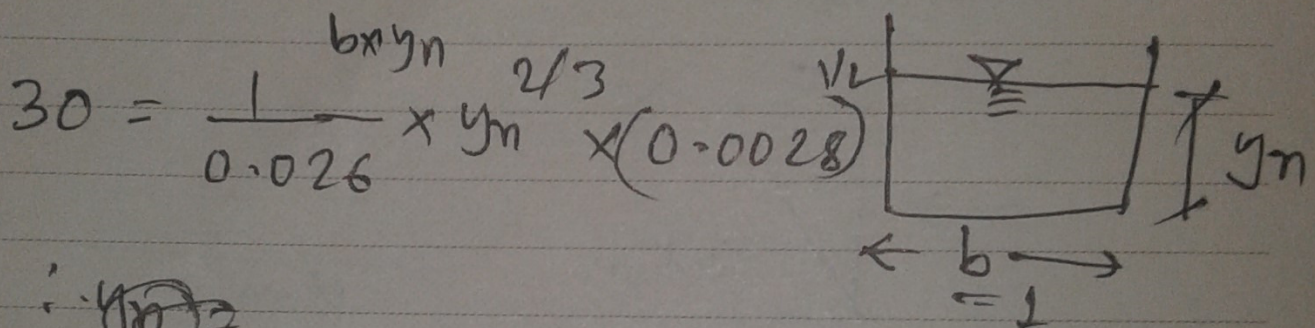 b×yn
30 = 1/0.026 × yn^2/3 × (0.0028)^1/2
yn
b
= 1
∴